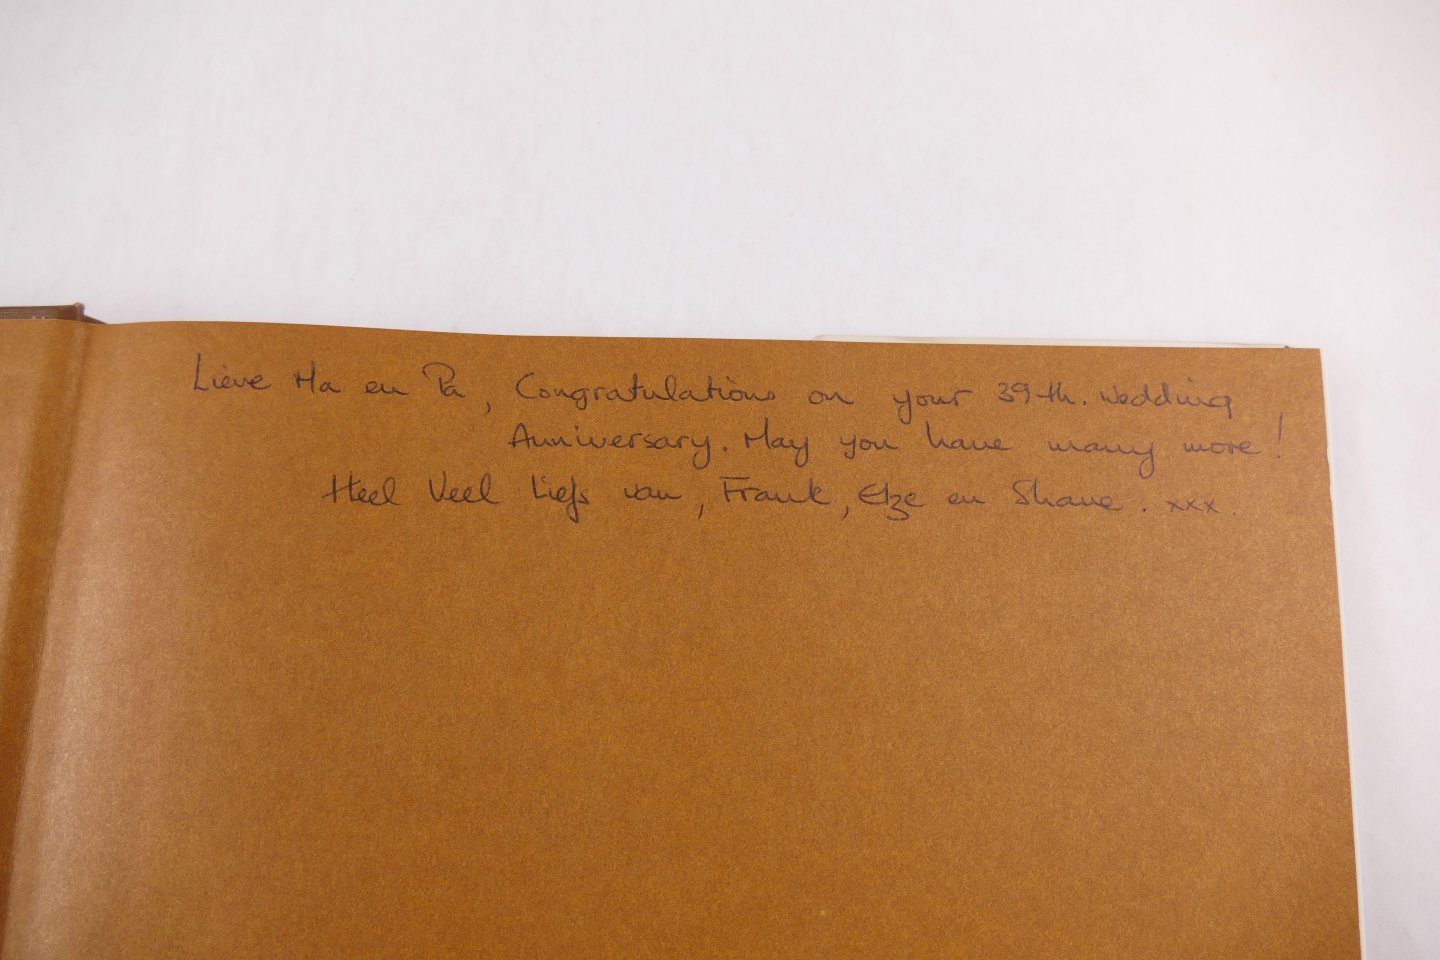 Lieve Ma en Pa, Congratulations on your 39-th. Wedding
Anniversary. May you have many more!
Heel Veel Liefs van, Frank, Elze en Shane. xxx.